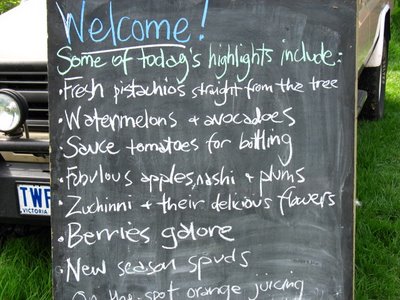 Welcome!
Some of today's highlights include:
• Fresh pistachios straight from the tree
• Watermelons + avocadoes
• Sauce tomatoes for bottling
• Fabulous apples, nashi + plums
• Zuchinni + their delicious flowers
• Berries galore
• New season spuds
On the spot orange juicing
TWF
VICTORIA